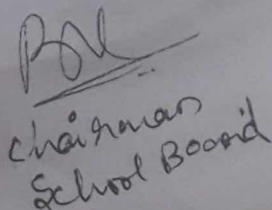 Chairman
School Board